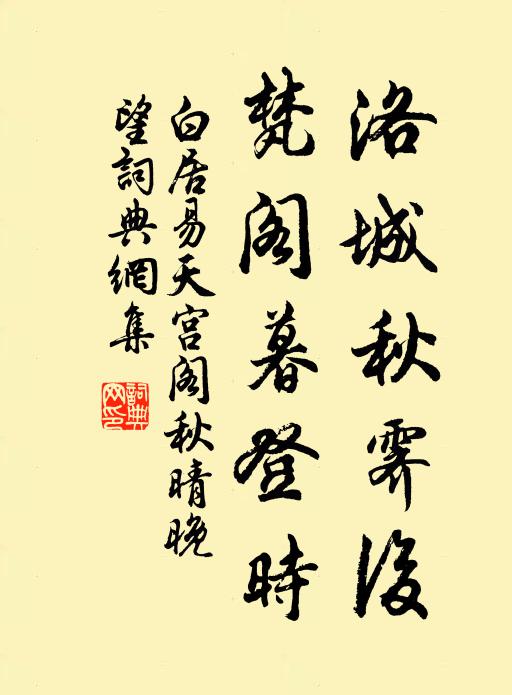 洛城秋霽後
梵阁暮登時
白居易天宫阁秋晴晚
望詞典網集
詞典
网印